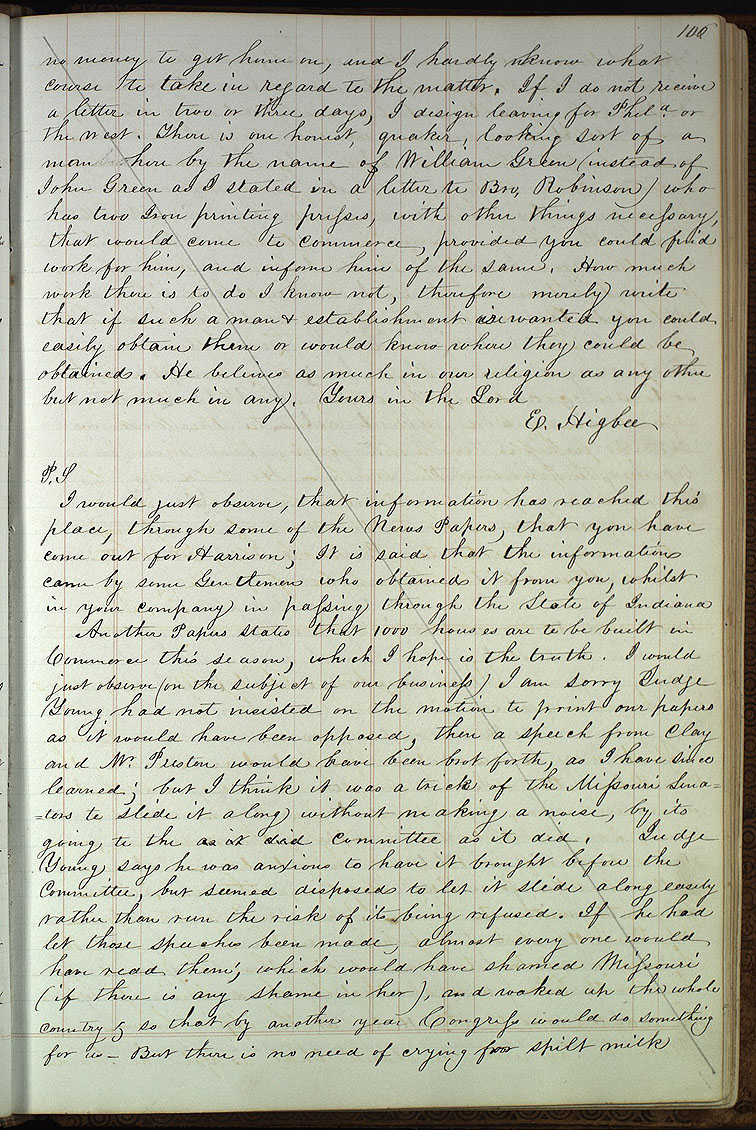 100
no money to get home on, and I hardly know what
course to take in regard to the matter. If I do not receive
a letter in two or three days, I design leaving for Phila. or
the west. There is one honest, quaker, looking sort of a
man here by the name of William Green (instead of
John Green as I stated in a letter to Bro, Robinson) who
has two Iron printing presses, with other things necessary,
that would come to Commerce, provided you could find
work for him, and inform him of the same. How much
work there is to do I know not, therefore merely write
that if such a man & establishment are wanted you could
easily obtain them or would know where they could be
obtained. He believes as much in our religion as any other
but not much in any. Yours in the Lord
E. Higbee
P.S
I would just observe, that information has reached this
place, through some of the News Papers, that you have
come out for Harrison; It is said that the information
came by some Gentlemen who obtained it from you, whilst
in your company in passing through the State of Indiana
Another Papers states that 1000 houses are to be built in
Commerce this season, which I hope is the truth. I would
just observe (on the subject of our business) I am sorry Judge
Young had not insisted on the motion to print our papers
as it would have been opposed, then a speech from Clay
and Mr. Preston would have been brot forth, as I have since
learned; but I think it was a trick of the Missouri Sena=
=tors to slide it along without making a noise, by its
going to the as it did committee as it did. Judge
Young says he was anxious to have it brought before the
Committee, but seemed disposed to let it slide along easily
rather than run the risk of its being refused. If he had
let those speeches been made, almost every one would
have read them; which would have shamed Missouri
(if there is any shame in her), and waked up the whole
country; so that by another year Congress would do something
for us — But there is no need of crying for spilt milk